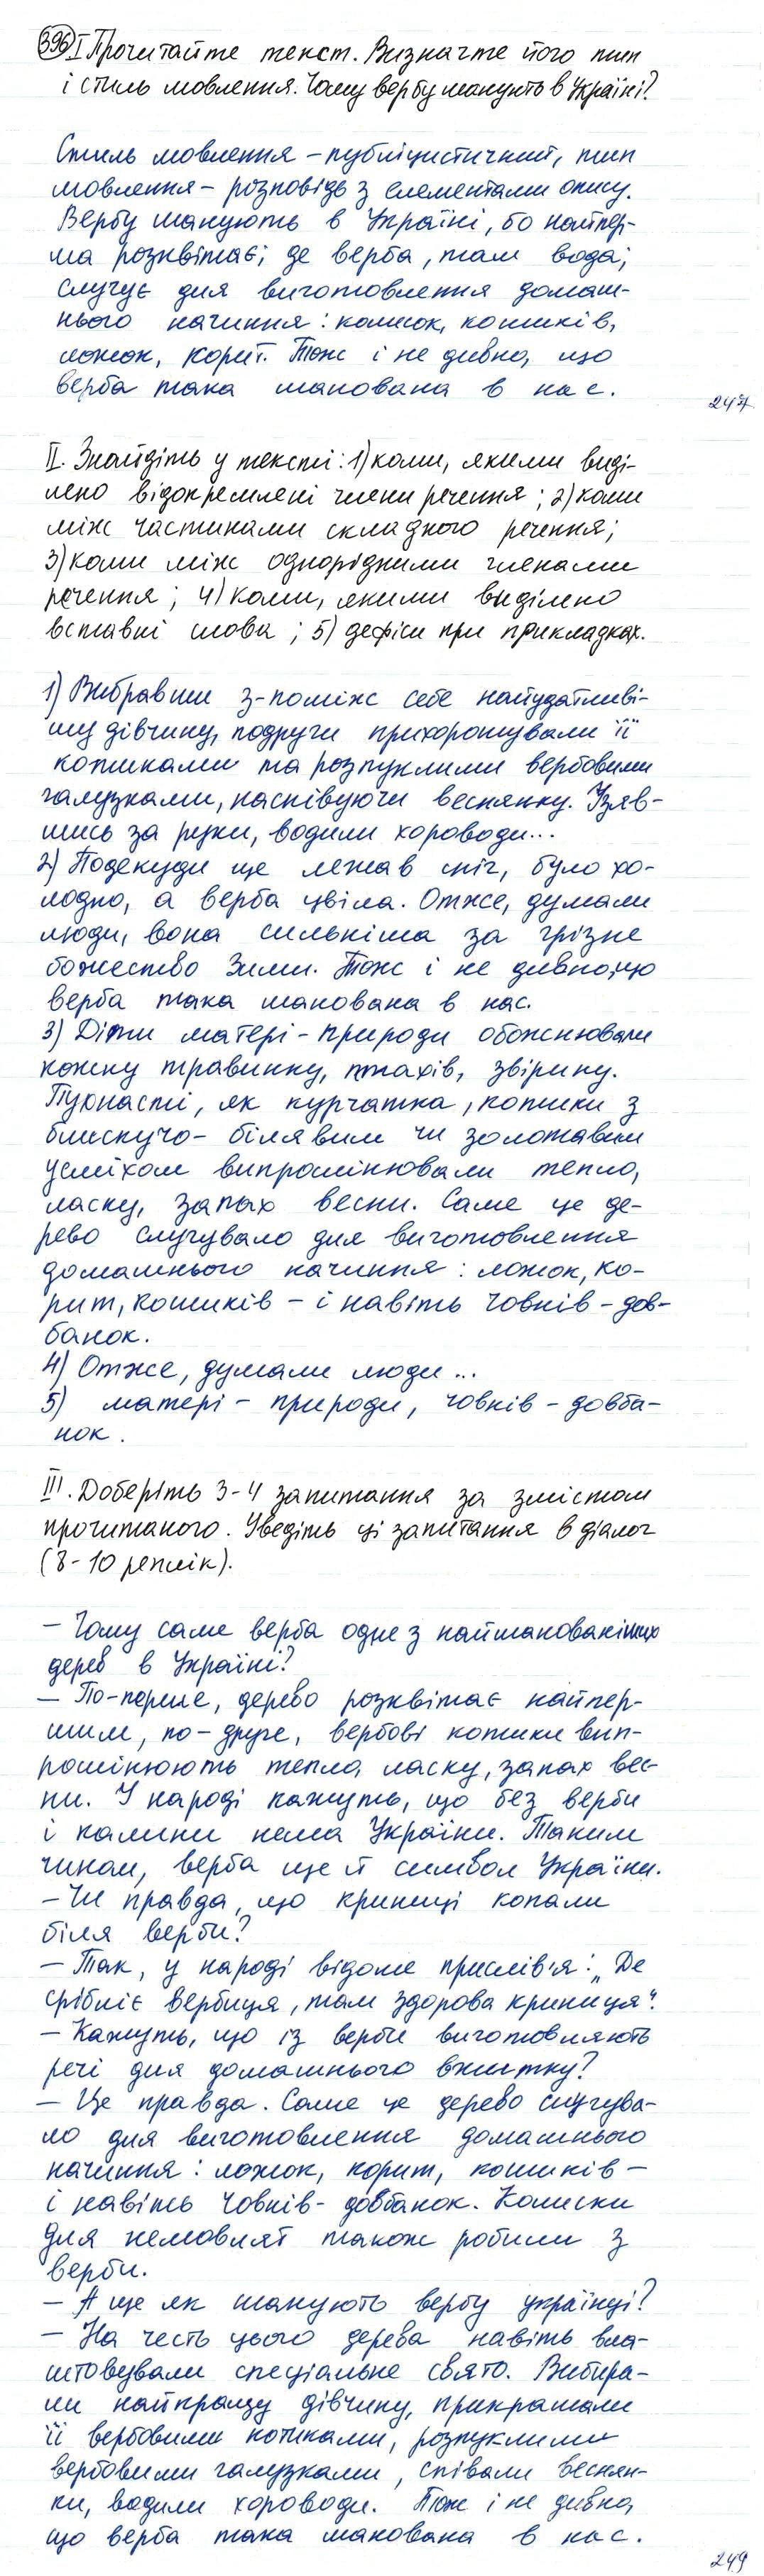 396 I Прочитайте текст. Визначте його тип
і стиль мовлення. Чому вербу шанують в Україні?
Стиль мовлення – публіцистичний, тип
мовлення – розповідь з елементами опису.
Вербу шанують в Україні, бо найпер-
ша розквітає; де верба, там вода;
служує для виготовлення домаш-
нього начиння: колисок, кошиків,
ложок, корит. Тож і не дивно, що
верба така шанована в нас.
247
II. Знайдіть у тексті: 1) коми, якими виді-
лено відокремлені члени речення; 2) коми
між частинами складного речення;
3) коми між однорідними членами
речення; 4) коми, якими виділено
вставні слова; 5) дефіси при прикладках.
1) Вибравши з-поміж себе найудатливі-
шу дівчину, подруги прихорошували її
котиками та розпуклими вербовими
галузками, наспівуючи веснянку. Узяв-
шись за руки, водили хороводи...
2) Подекуди ще лежав сніг, було хо-
лодно, а верба цвіла. Отже, думали
люди, вона сильніша за грізне
божество Зими. Тож і не дивно, що
верба така шанована в нас.
3) Діти матері-природи обожнювали
кожну травинку, птахів, звірину.
Пухнасті, як курчатка, котики з
блискучо-білявим чи золотавим
усміхом випромінювали тепло,
ласку, запах весни. Саме це де-
рево слугувало для виготовлення
домашнього начиння: ложок, ко-
рит, кошиків – і навіть човнів-дов-
банок.
4) Отже, думали люди...
5) матері-природи, човнів-довба-
нок.
III. Доберіть 3-4 запитання за змістом
прочитаного. Уведіть ці запитання в діалог
(8-10 реплік).
– Чому саме верба одне з найшанованіших
дерев в Україні?
– По-перше, дерево розквітає найпер-
шим, по-друге, вербові котики вип-
ромінюють тепло, ласку, запах вес-
ни. У народі кажуть, що без верби
і калини нема України. Таким
чином, верба ще й символ України.
– Чи правда, що криниці копали
біля верби?
– Так, у народі відоме прислів'я: „Де
срібліє вербиця, там здорова криниця".
– Кажуть, що із верби виготовляють
речі для домашнього вжитку?
– Це правда. Саме це дерево слугува-
ло для виготовлення домашнього
начиння: ложок, корит, кошиків –
і навіть човнів-довбанок. Колиски
для немовлят також робили з
верби.
– А ще як шанують вербу українці?
– На честь цього дерева навіть вла-
штовували спеціальне свято. Вибира-
ли найкращу дівчину, прикрашали
її вербовими котиками, розпуклими
вербовими галузками, співали веснян-
ки, водили хороводи. Тож і не дивно,
що верба така шанована в нас.
249